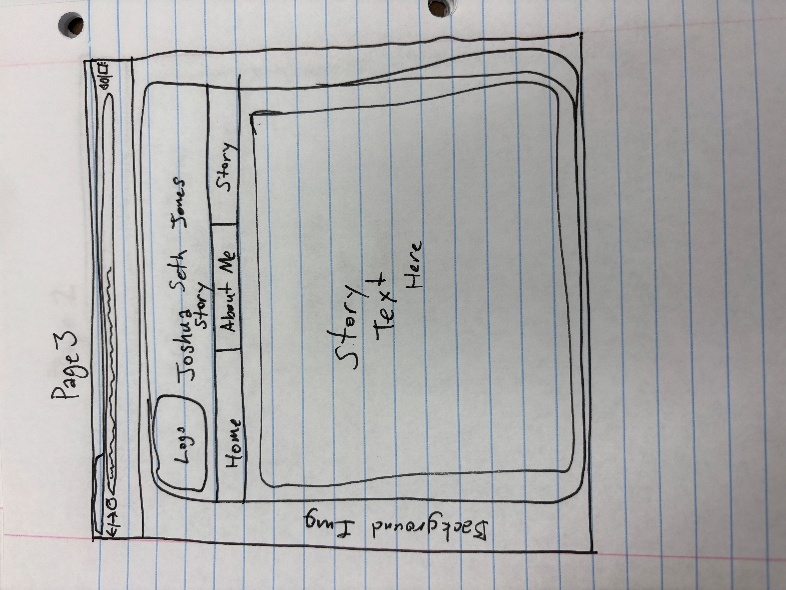 Page 3
Logo
Joshua Seth Jones
Story
Home
About Me
Story
Story
Text
Here
Background Img